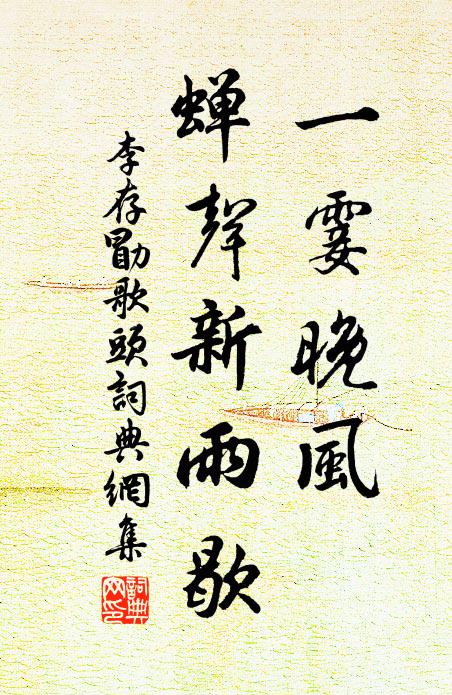 一霎晚風
蝉聲新雨歇
李存勗歌頭詞典網集
詞典網印